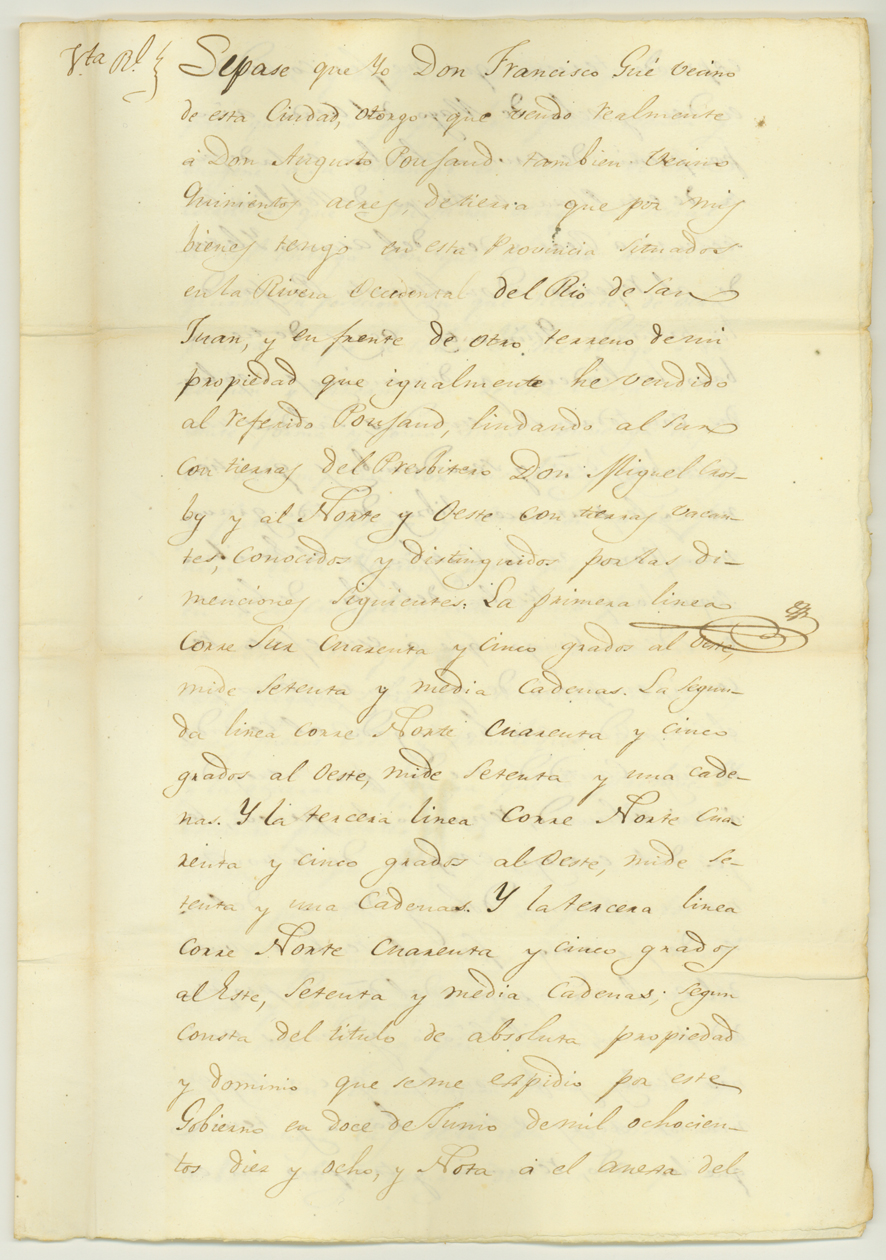 Vta Rl
Sepase que Yo Don Francisco Gué vecino
de esta Ciudad, otorgo que vendo realmente
á Don Augusto Poujaud tambien Vecino
Quinientos acres, de tierra que por mis
bienes tengo en esta Provincia situados
en la Rivera Occidental del Rio de San
Juan, y en frente de otro terreno de mi
propiedad que igualmente he vendido
al referido Poujaud, lindando al Sur
con tierras del Presbitero Don Miguel Cros-
by y al Norte y Oeste con tierras vacan-
tes, conocidos y distinguidos por las di-
menciones siguientes. La primera linea
Corre Sur Cuarenta y cinco grados al Oeste,
mide setenta y media Cadenas. La segun-
da linea corre Norte Cuarenta y cinco
grados al Oeste, mide setenta y una cade-
nas. Y la tercera linea Corre Norte Cua-
renta y cinco grados al Oeste, mide se-
tenta y una Cadenas. Y la tercera linea
Corre Norte Cuarenta y cinco grados
al Este, setenta y media Cadenas; segun
consta del titulo de absoluta propiedad
y dominio que se me expidio por este
Gobierno en doce de Junio de mil ochocien-
tos diez y ocho, y Nota á el anexa del